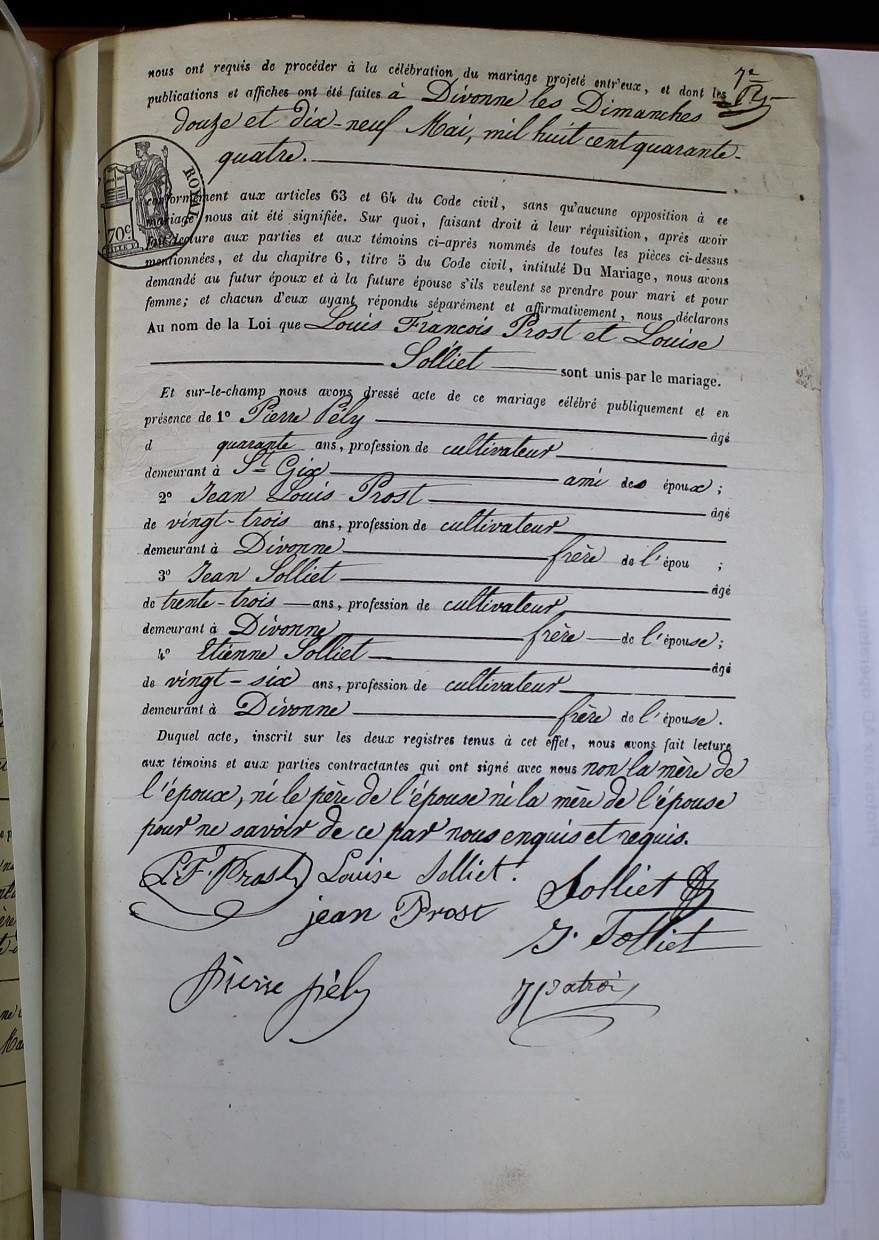 nous ont requis de procéder à la célébration du mariage projeté entr'eux, et dont les
7e
publications et affiches ont été faites à Divonne les Dimanches
douze et dix-neuf Mai, mil huit cent quarante-
quatre.
ROYAL
70c
conformément aux articles 63 et 64 du Code civil, sans qu'aucune opposition à ce
mariage nous ait été signifiée. Sur quoi, faisant droit à leur réquisition, après avoir
fait lecture aux parties et aux témoins ci-après nommés de toutes les pièces ci-dessus
mentionnées, et du chapitre 6, titre 5 du Code civil, intitulé Du Mariage, nous avons
demandé au futur époux et à la future épouse s'ils veulent se prendre pour mari et pour
femme; et chacun d'eux ayant répondu séparément et affirmativement, nous déclarons
Au nom de la Loi que Louis François Prost et Louise
Solliet sont unis par le mariage.
Et sur-le-champ nous avons dressé acte de ce mariage célébré publiquement et en
présence de 1º Pierre Pély âgé
d quarante ans, profession de cultivateur
demeurant à St Gix ami des époux;
2º Jean Louis Prost âgé
de vingt-trois ans, profession de cultivateur
demeurant à Divonne frère de l'épou ;
3º Jean Solliet âgé
de trente-trois ans, profession de cultivateur
demeurant à Divonne frère de l'épouse;
4º Etienne Solliet âgé
de vingt-six ans, profession de cultivateur
demeurant à Divonne frère de l'épouse.
Duquel acte, inscrit sur les deux registres tenus à cet effet, nous avons fait lecture
aux témoins et aux parties contractantes qui ont signé avec nous non la mère de
l'époux, ni le père de l'épouse ni la mère de l'épouse
pour ne savoir de ce par nous enquis et requis.
L. F. Prost Louise Solliet. Solliet
jean Prost
J. Solliet
pierre pély